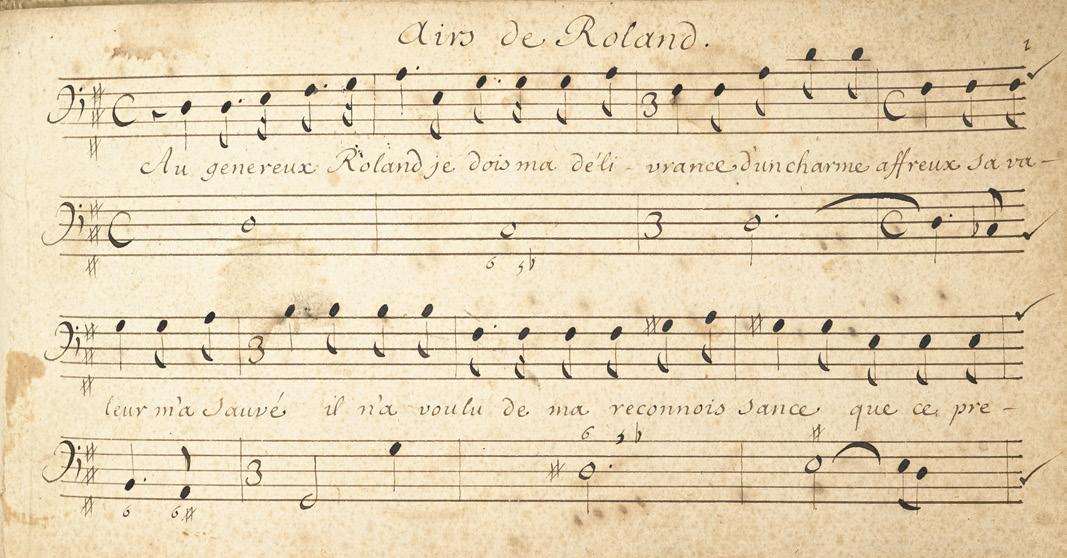 Airs de Roland.
1
Au genereux Roland je dois ma déli - vrance d'un charme affreux sa va -
6 5b
leur m'a sauvé il n'a voulu de ma reconnois sance que ce pre -
6 5b
6 6#